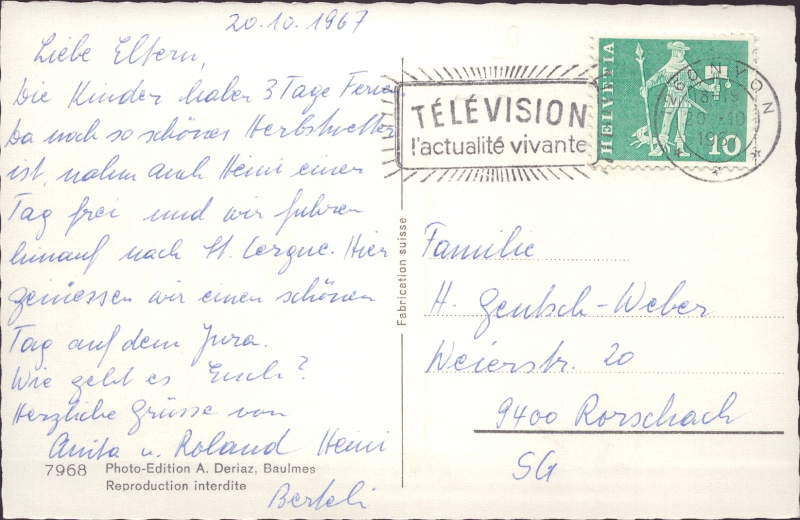 20.10.1967
Liebe Eltern,
Die Kinder haben 3 Tage Ferien
Da noch so schönes Herbstwetter
ist, nahm auch Heini einen
Tag frei und wir fuhren
hinauf nach St. Cergue. Hier
geniessen wir einen schönen
Tag auf dem Jura.
Wie geht es Euch?
Herzliche Grüsse von
Anita u. Roland Heini
Berteli
7968 Photo-Edition A. Deriaz, Baulmes
Reproduction interdite
Fabrication suisse
TÉLÉVISION
l'actualité vivante
HELVETIA
10
NYON
Familie
H. Gentsch-Weber
Weierstr. 20
9400 Rorschach
SG